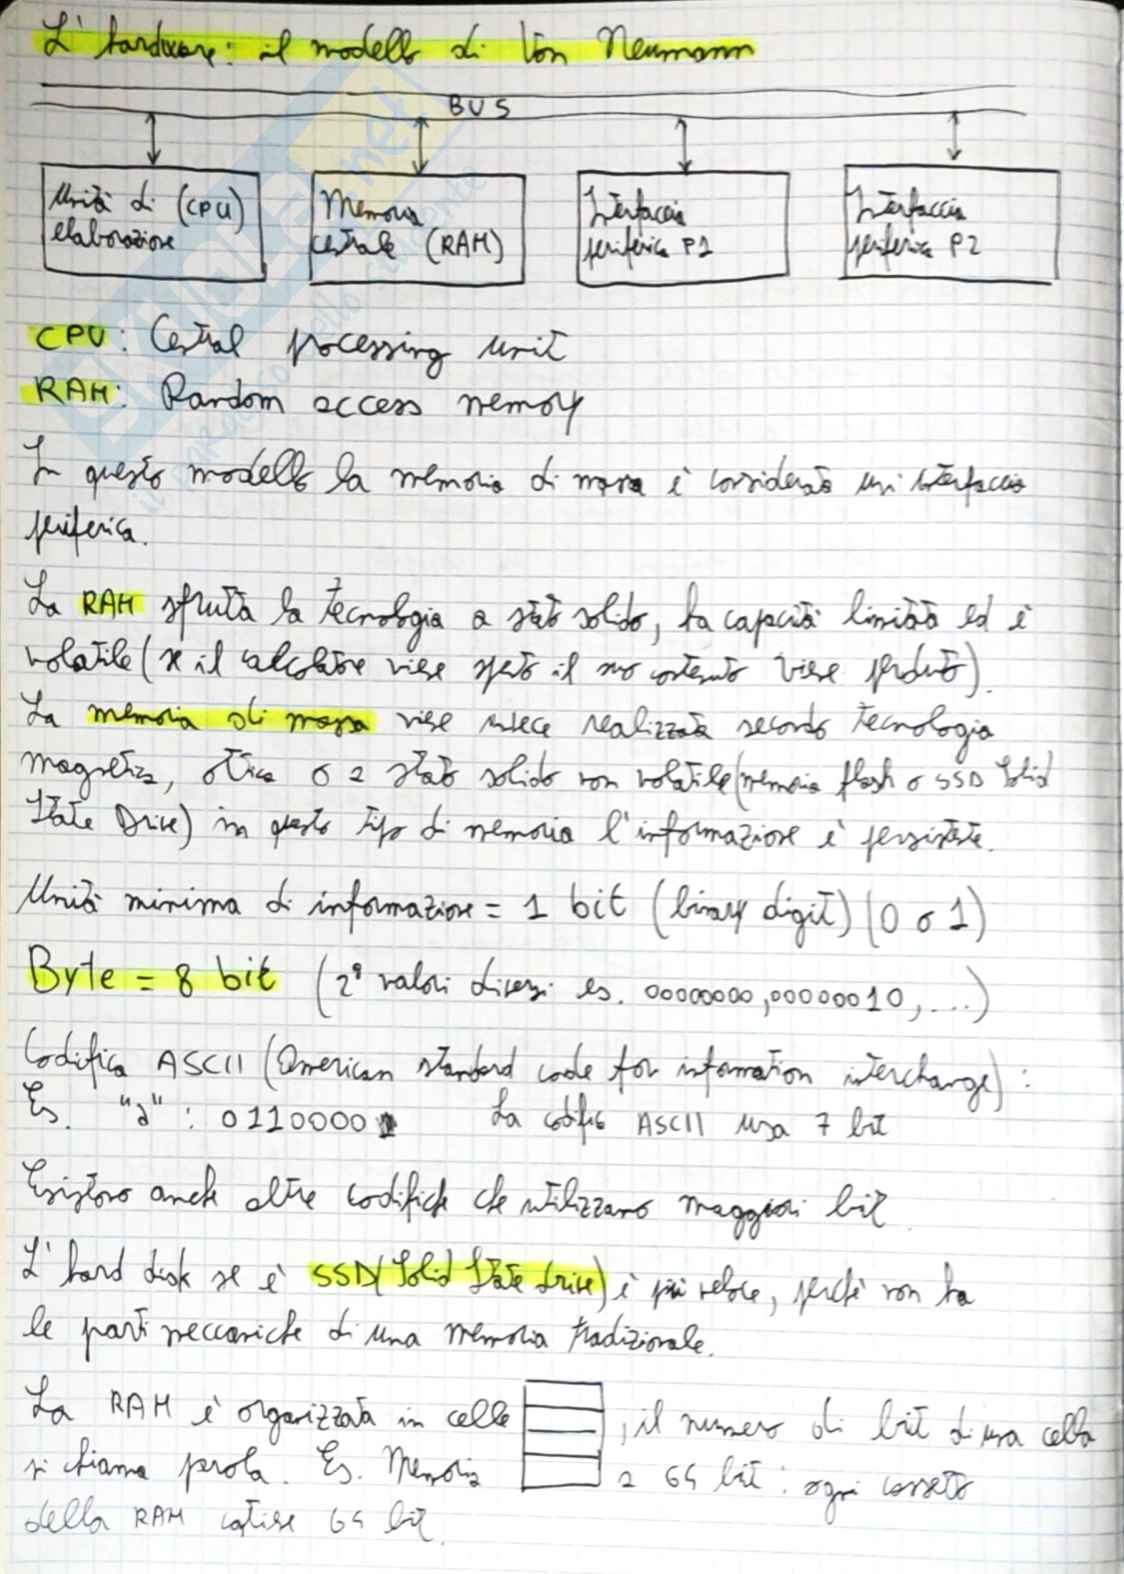 L'hardware: il modello di Von Neumann
BUS
Unità di (CPU)
elaborazione
Memoria
centrale (RAM)
Interfaccia
periferica P1
Interfaccia
periferica P2
CPU: Central processing unit
RAM: Random access memory
In questo modello la memoria di massa è considerata un'interfaccia
periferica.
La RAM sfrutta la tecnologia a stato solido, ha capacità limitata ed è
volatile (se il calcolatore viene spento il suo contenuto viene perduto).
La memoria di massa viene invece realizzata secondo tecnologia
magnetica, ottica o a stato solido non volatile (memoria flash o SSD Solid
State Drive) in questo tipo di memoria l'informazione è persistente.
Unità minima di informazione = 1 bit (binary digit) (0 o 1)
Byte = 8 bit (2⁸ valori diversi es. 00000000,00000010,...)
Codifica ASCII (American standard code for information interchange):
Es. "a": 01100001 La codifica ASCII usa 7 bit
Esistono anche altre codifiche che utilizzano maggiori bit
L'hard disk se è SSD(Solid State drive) è più veloce, perché non ha
le parti meccaniche di una memoria tradizionale.
La RAM è organizzata in celle , il numero di bit di una cella
si chiama parola. Es. Memoria a 64 bit: ogni cassetto
della RAM contiene 64 bit.